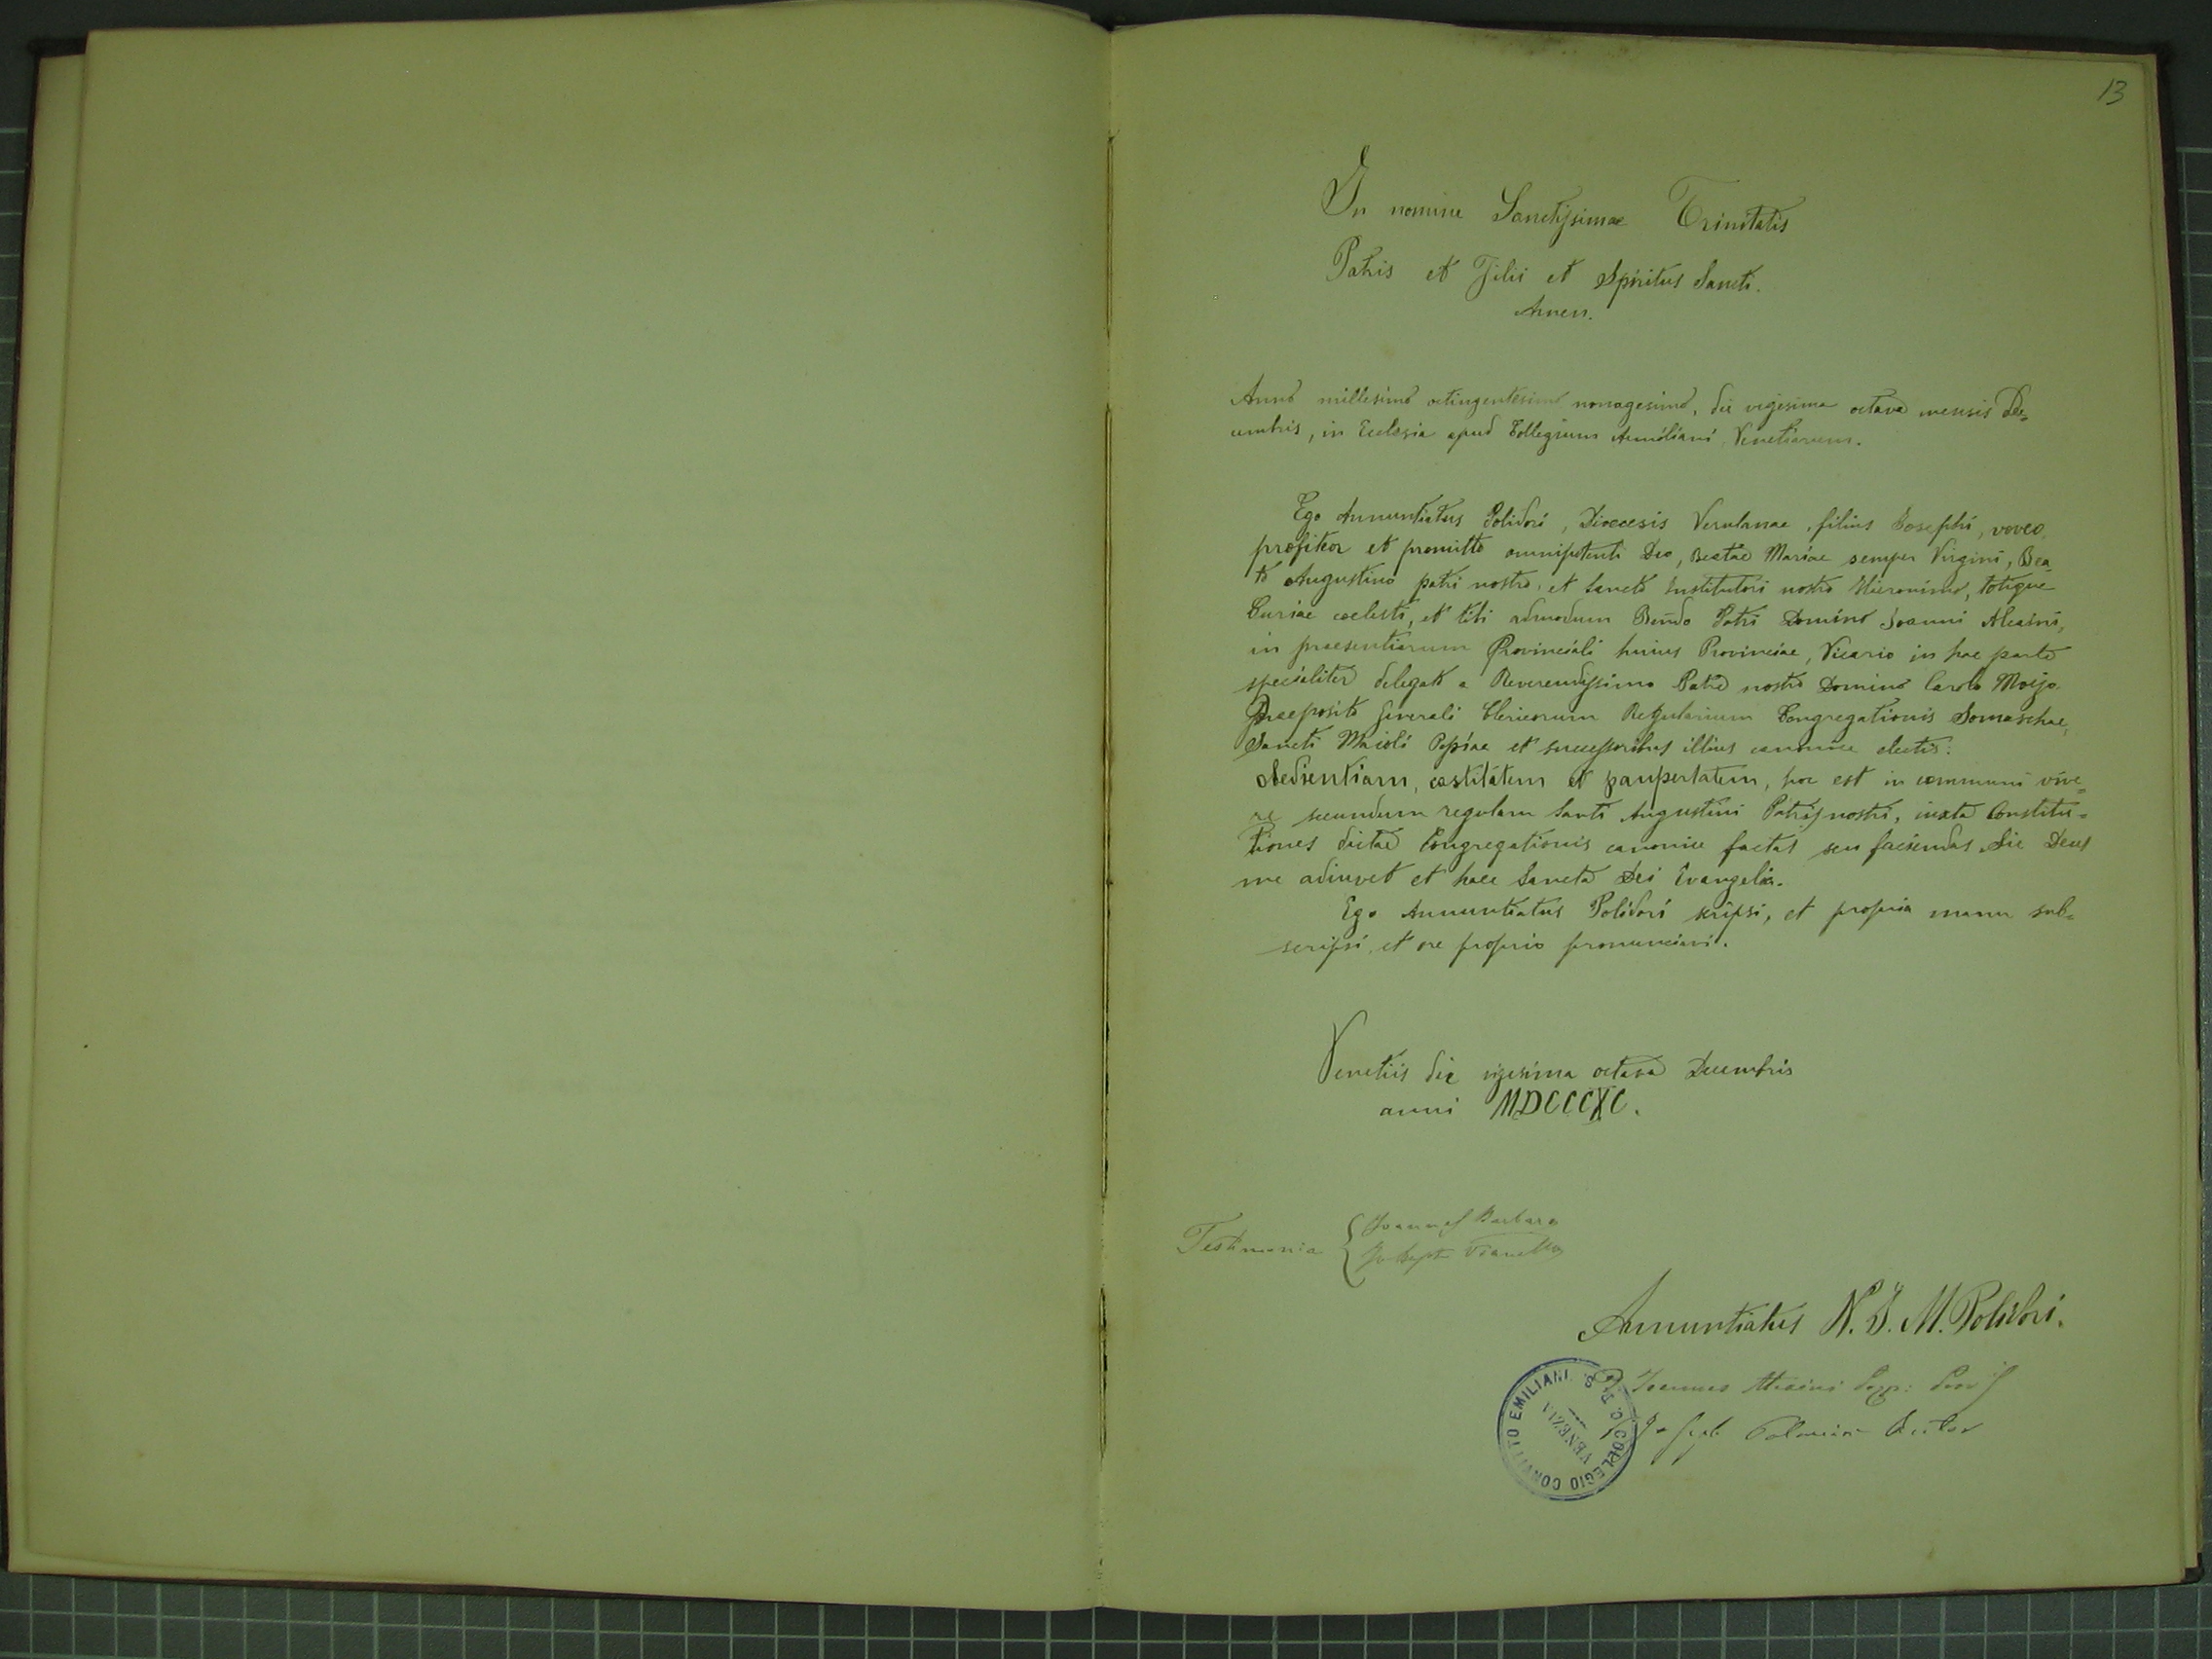 13
In nomine Sanctissimae Trinitatis
Patris et Filii et Spiritus Sancti.
Amen.
Anno millesimo octingentesimo nonagesimo, die vigesima octava mensis De=
cembris, in Ecclesia apud Collegium Aemiliani Venetiarum.
Ego Annuntiatus Polidori, Dioecesis Verulanae, filius Josephi, voveo,
profiteor et promitto omnipotenti Deo, Beatae Mariae semper Virgini, Bea
to Augustino patri nostro, et Sancto Institutori nostro Hieronimo, totique
Curiae coelesti, et tibi admodum Rendo Patri Domino Joanni Alcaini,
in praesentiarum Provinciali huius Provinciae, Vicario in hac parte
specialiter delegato a Reverendissimo Patre nostro Domino Carolo Moizo
Praeposito Generali Clericorum Regularium Congregationis Somaschae,
Sancti Maioli Papiae et successoribus illius canonice electis:
obedientiam, castitatem et paupertatem, hoc est in communi vive=
re secundum regulam Santi Augustini Patris nostri, iuxta Constitu=
tiones dictae Congregationis canonice factas seu faciendas. Sic Deus
me adiuvet et haec Sancta Dei Evangelia.
Ego Annuntiatus Polidori scripsi, et propria manu sub=
scripsi, et ore proprio pronunciavi.
Venetiis die vigesima octava Decembris
anni MDCCCXC.
Testimonia { Joannes Barbaro
Joseph Vianello
Annuntiatus N. J. M. Polidori.
Joannes Alcaini
Joseph Palmieri
COLLEGIO CONVITTO EMILIANI
VENEZIA